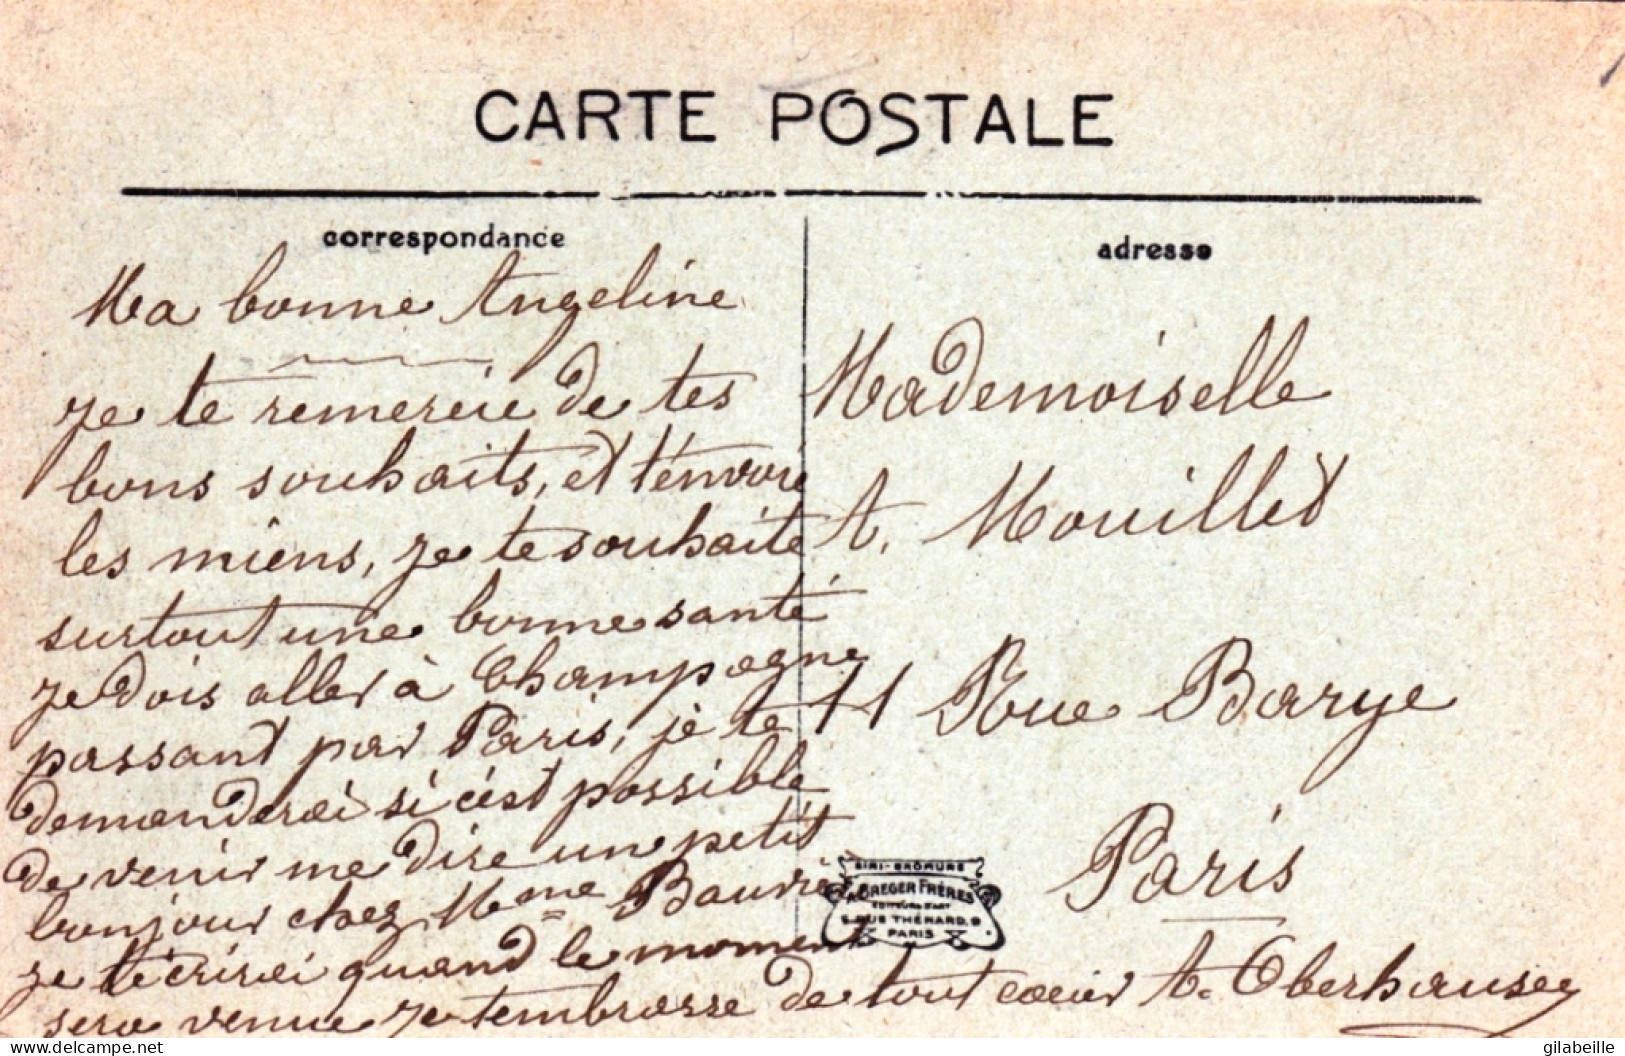 CARTE POSTALE
correspondance
Ma bonne Angeline
Je te remercie de tes
bons souhaits, et t'envoie
les miens, je te souhaite
surtout une bonne santé
je dois aller à Champagne
passant par Paris, je te
demanderai si c'est possible
de venir me dire un petit
bonjour chez Mme
je t'écrirai quand le moment
sera venue je t'embrasse de tout coeur A. Oberhauser
adresse
Mademoiselle
A. Mouillet
11 Rue Barye
Paris
SIRI-BROMURE
A. BREGER FRÈRES
EDITEURS D'ART
9 RUE THÉNARD, 9
PARIS
delcampe.net
gilabeille